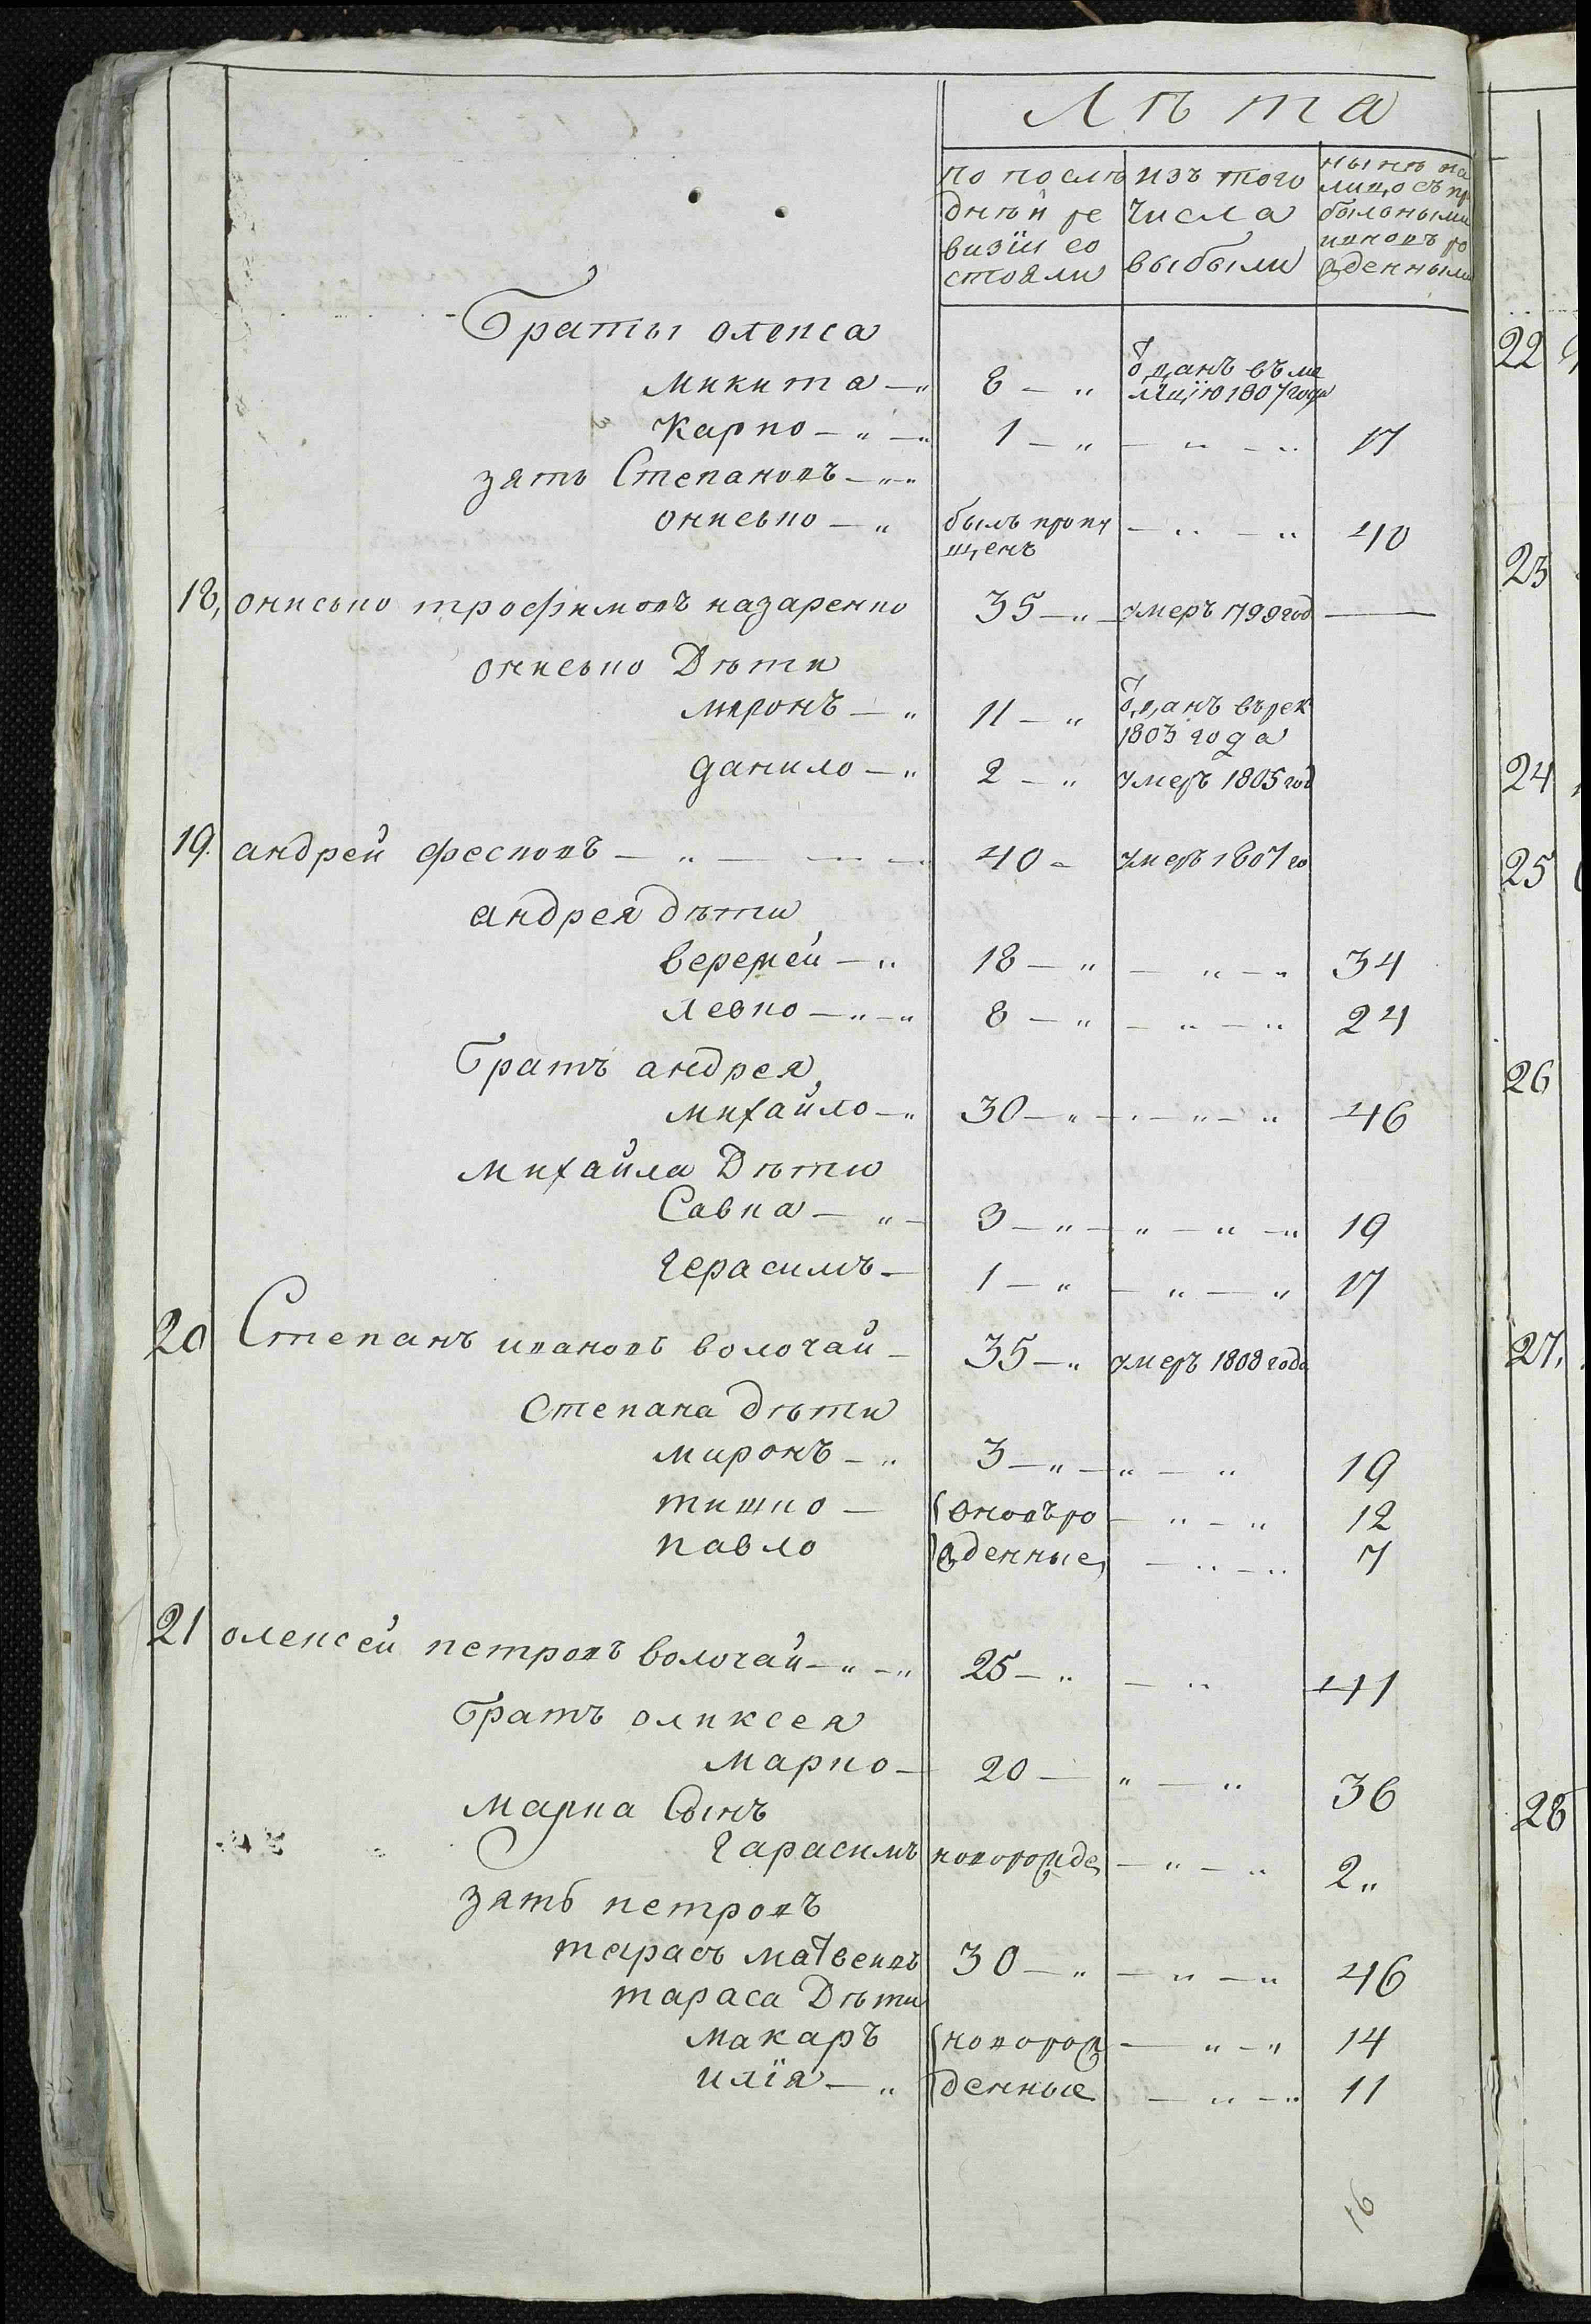 Лѣта
по послѣ
днѣй ре
визїи со
стояли
изъ того
числа
выбыли
нынѣ на
лицо съ пр
былоными
иновъ ро
жденными
Браты олекса
микита — „ 8 — „ ѿданъ въ ми
лицїю 1807 года
Карпо — „ — „ 1 — „ — „ — „ 17
зять Степановъ — „ — „
онисько — „ былъ пропу
щенъ — „ — „ 40
18, онисько трофимовъ назаренко 35 — „ — умеръ 799 год —
онисько Дѣти
миронъ — „ 11 — „ ѿданъ въ рек
1803 года
данило — „ 2 — „ умеръ 1805 год
19. андрей фесковъ — „ — „ — „ 40 — умеръ 1807 го
андрея дѣти
веремей — „ 18 — „ — „ — „ 34
левко — „ — „ 8 — „ — „ — „ 24
Братъ андрея
михайло — „ 30 — „ — „ — „ — „ 46
михайла Дѣти
Савка — „ — 3 — „ — „ — „ — „ 19
герасимъ — 1 — „ — „ — „ 17
20 Степанъ ивановъ волочай — 35 — „ умеръ 1808 года
степана дѣти
миронъ — „ 3 — „ — „ — „ 19
тишко — оновъро — „ — „ 12
павло жденные — „ — „ 7
21 олексей петровъ волочай — „ — „ 25 — „ — „ 41
Братъ оликсея
марко — 20 — „ — „ 36
марка Сынъ
гарасимъ новорожде — „ — „ 2 „
зять петровъ
тарасъ матвеивъ 30 — „ — „ — „ 46
тараса Дѣти
макаръ новорож — „ — „ 14
илїя — „ денные — „ — „ 11
16
22
23
24
25
26
27,
28